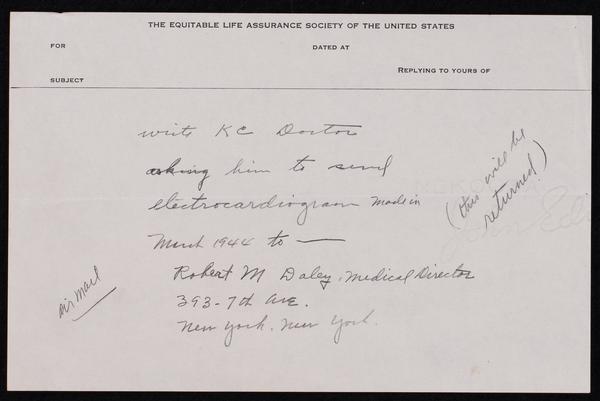 THE EQUITABLE LIFE ASSURANCE SOCIETY OF THE UNITED STATES
FOR
DATED AT
REPLYING TO YOURS OF
SUBJECT
write KC Doctor
asking him to send
electrocardiogram made in
March 1944 to —
Robert M Daley, Medical Director
393-7th Ave.
New York, New York.
(this will be
returned)
air mail